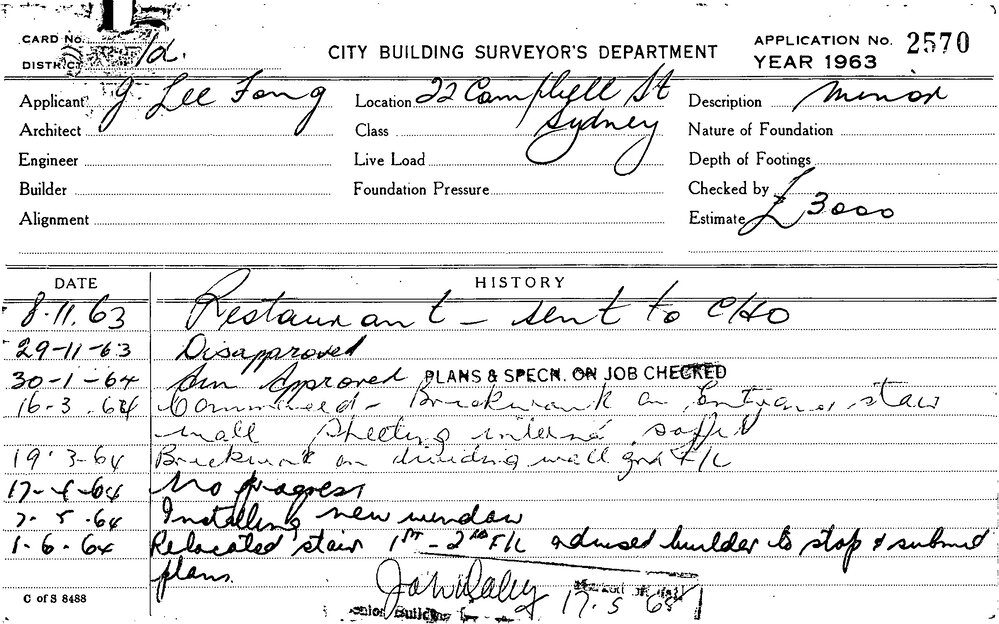 CARD No.
DISTRICT 1d.
CITY BUILDING SURVEYOR'S DEPARTMENT
APPLICATION No. 2570
YEAR 1963
Applicant J Lee Fong
Location 22 Campbell St
Sydney
Description Minor
Architect
Class
Nature of Foundation
Engineer
Live Load
Depth of Footings
Builder
Foundation Pressure
Checked by
Alignment
Estimate £3000
DATE HISTORY
8.11.63 Restaurant - sent to CHO
29-11-63 Disapproved
30-1-64 Approved PLANS & SPECN. ON JOB CHECKED
16-3.64 Commenced - Brickwork on stair
wall sheeting
19.3-64 Brickwork on dividing wall
17-4-64 No progress
7.5.64 Installing new window
1.6.64 Relocated stair 1ST - 2ND F/L advised builder to stop & submit
plans.
17.5
C of S 8488